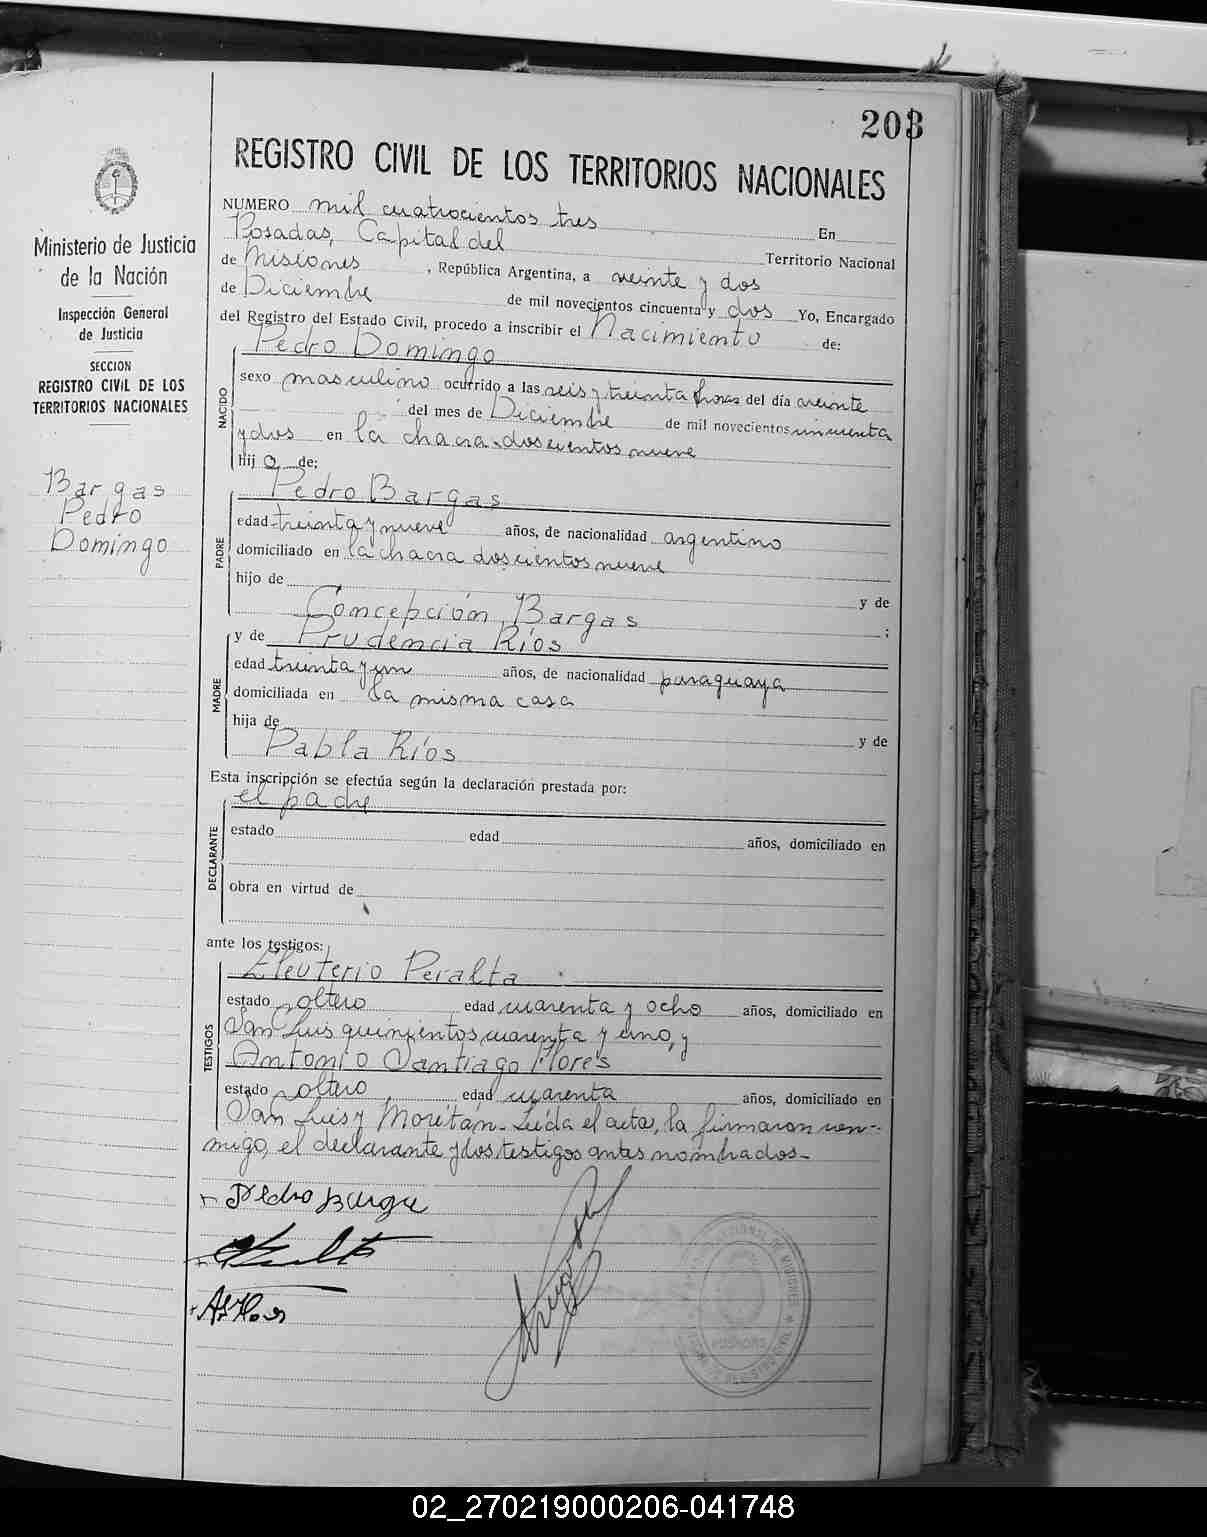 203
REGISTRO CIVIL DE LOS TERRITORIOS NACIONALES
Ministerio de Justicia
de la Nación
Inspección General
de Justicia
SECCION
REGISTRO CIVIL DE LOS
TERRITORIOS NACIONALES
Bargas
Pedro
Domingo
NUMERO mil cuatrocientos tres En
Posadas, Capital del Territorio Nacional
de Misiones, República Argentina, a veinte y dos
de Diciembre de mil novecientos cincuenta y dos Yo, Encargado
del Registro del Estado Civil, procedo a inscribir el Nacimiento de:
NACIDO
Pedro Domingo
sexo masculino ocurrido a las seis y treinta horas del día veinte
del mes de Diciembre de mil novecientos cincuenta
y dos en la chacra doscientos nueve
hijo de:
PADRE
Pedro Bargas
edad treinta y nueve años, de nacionalidad argentino
domiciliado en la chacra doscientos nueve
hijo de y de
Concepción Bargas ;
MADRE
y de Prudencia Ríos
edad treinta y un años, de nacionalidad paraguaya
domiciliada en la misma casa
hija de y de
Pabla Ríos
Esta inscripción se efectúa según la declaración prestada por:
DECLARANTE
el padre
estado edad años, domiciliado en
obra en virtud de
ante los testigos:
TESTIGOS
Eleuterio Peralta
estado soltero edad cuarenta y ocho años, domiciliado en
San Luis quinientos cuarenta y uno, y
Antonio Santiago Flores
estado soltero, edad cuarenta años, domiciliado en
San Luis y Moritán - Leída el acta, la firmaron con-
migo, el declarante y los testigos antes nombrados-
Pedro Barga
POSADAS
02_270219000206-041748